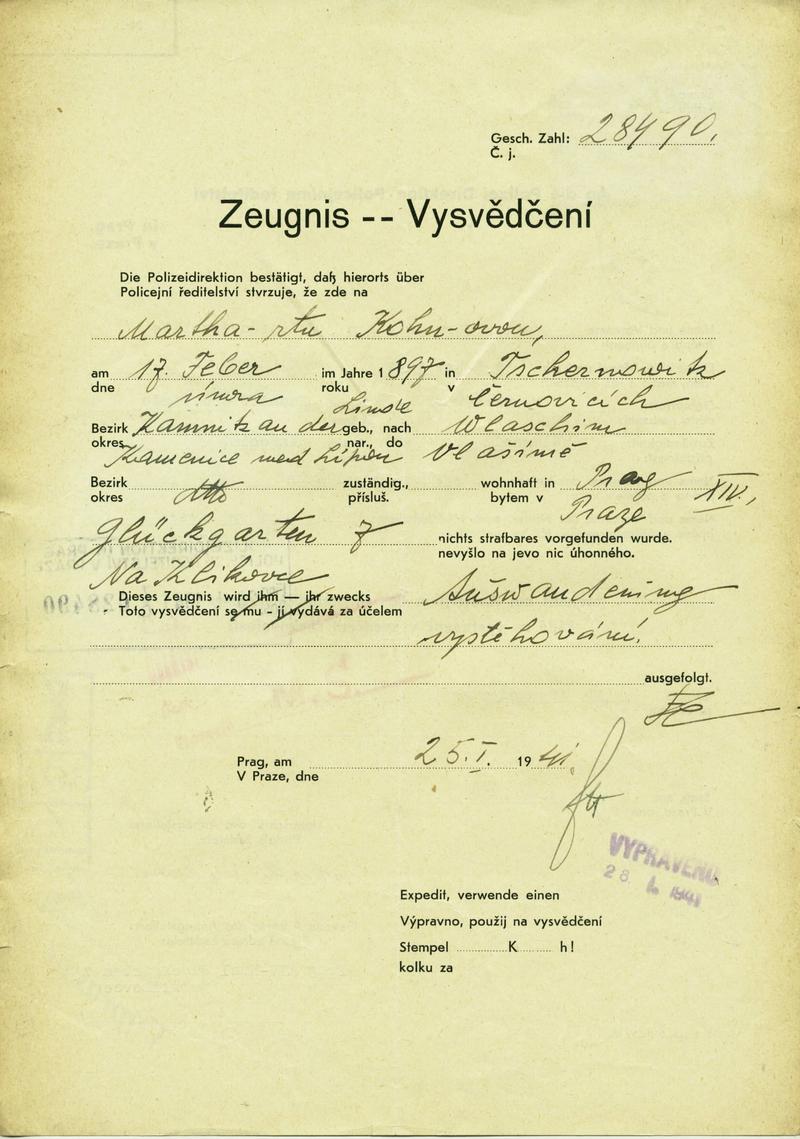 Gesch. Zahl: 28490.
Č. j.
Zeugnis -- Vysvědčení
Die Polizeidirektion bestätigt, daß hierorts über
Policejní ředitelství stvrzuje, že zde na
Martha-rtu Kohn-ovou,
am 17. Feber im Jahre 1 897 in Tschernowitz
dne února roku v Černovicích
Bezirk Kamnitz an der Linde geb., nach Wlaschim
okres Kamenice nad Lipou nar., do Vlašimě
Bezirk zuständig., wohnhaft in Prag XIV.,
okres přísluš. bytem v Praze
Glückgarten 7 nichts strafbares vorgefunden wurde.
nevyšlo na jevo nic úhonného.
Na Klikovce
Dieses Zeugnis wird ihm — ihr zwecks Auswanderung
Toto vysvědčení se mu - jí vydává za účelem
vystěhování.
ausgefolgt.
Prag, am 25. I. 19 41.
V Praze, dne
VYPRAVENO
28. 1941
Expedit, verwende einen
Výpravno, použij na vysvědčení
Stempel K h!
kolku za